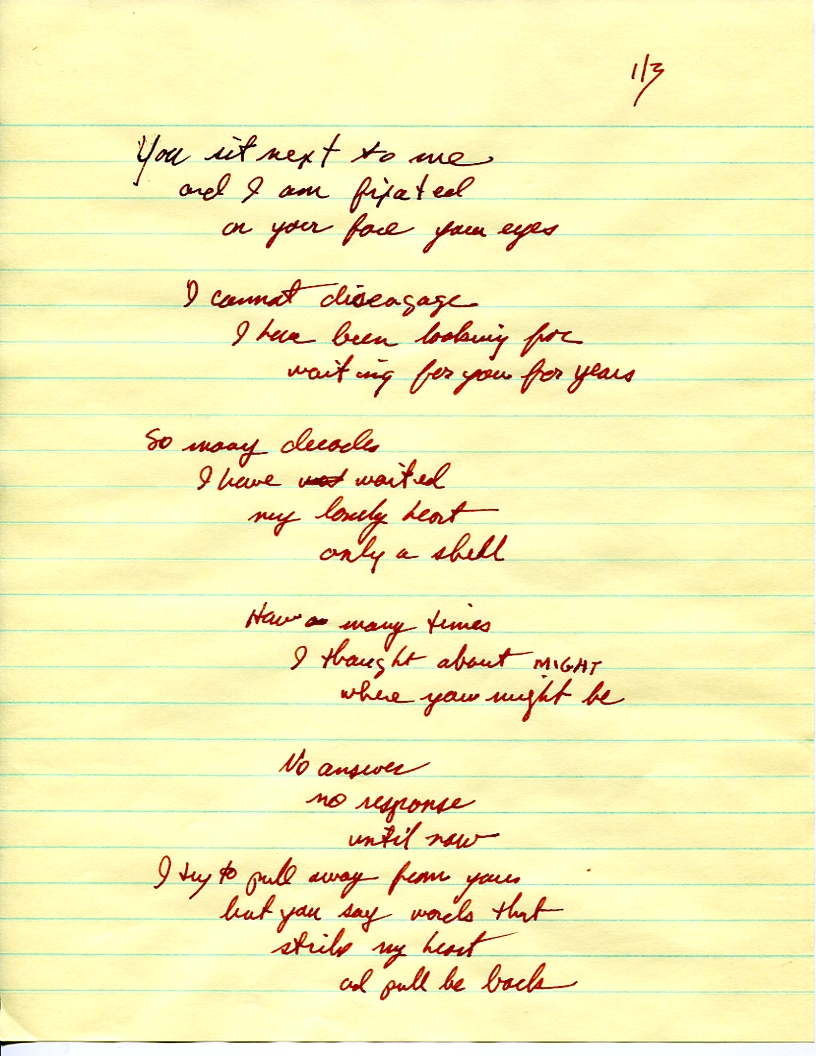 1/3
You sit next to me
and I am fixated
on your face your eyes
I cannot diseagage
I have been looking for
waiting for you for years
So many decades
I have waited
my lonely heart
only a shell
How many times
I thought about MIGHT
where you might be
No answer
no response
until now
I try to pull away from yours
but you say words that
strike my heart
ad pull be back